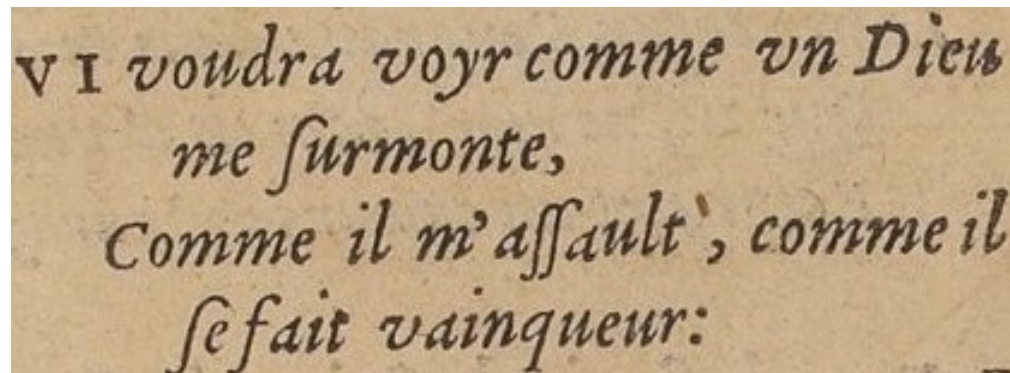 VI voudra voyr comme vn Dieu
me ſurmonte,
Comme il m’aſſault, comme il
ſe fait vainqueur: